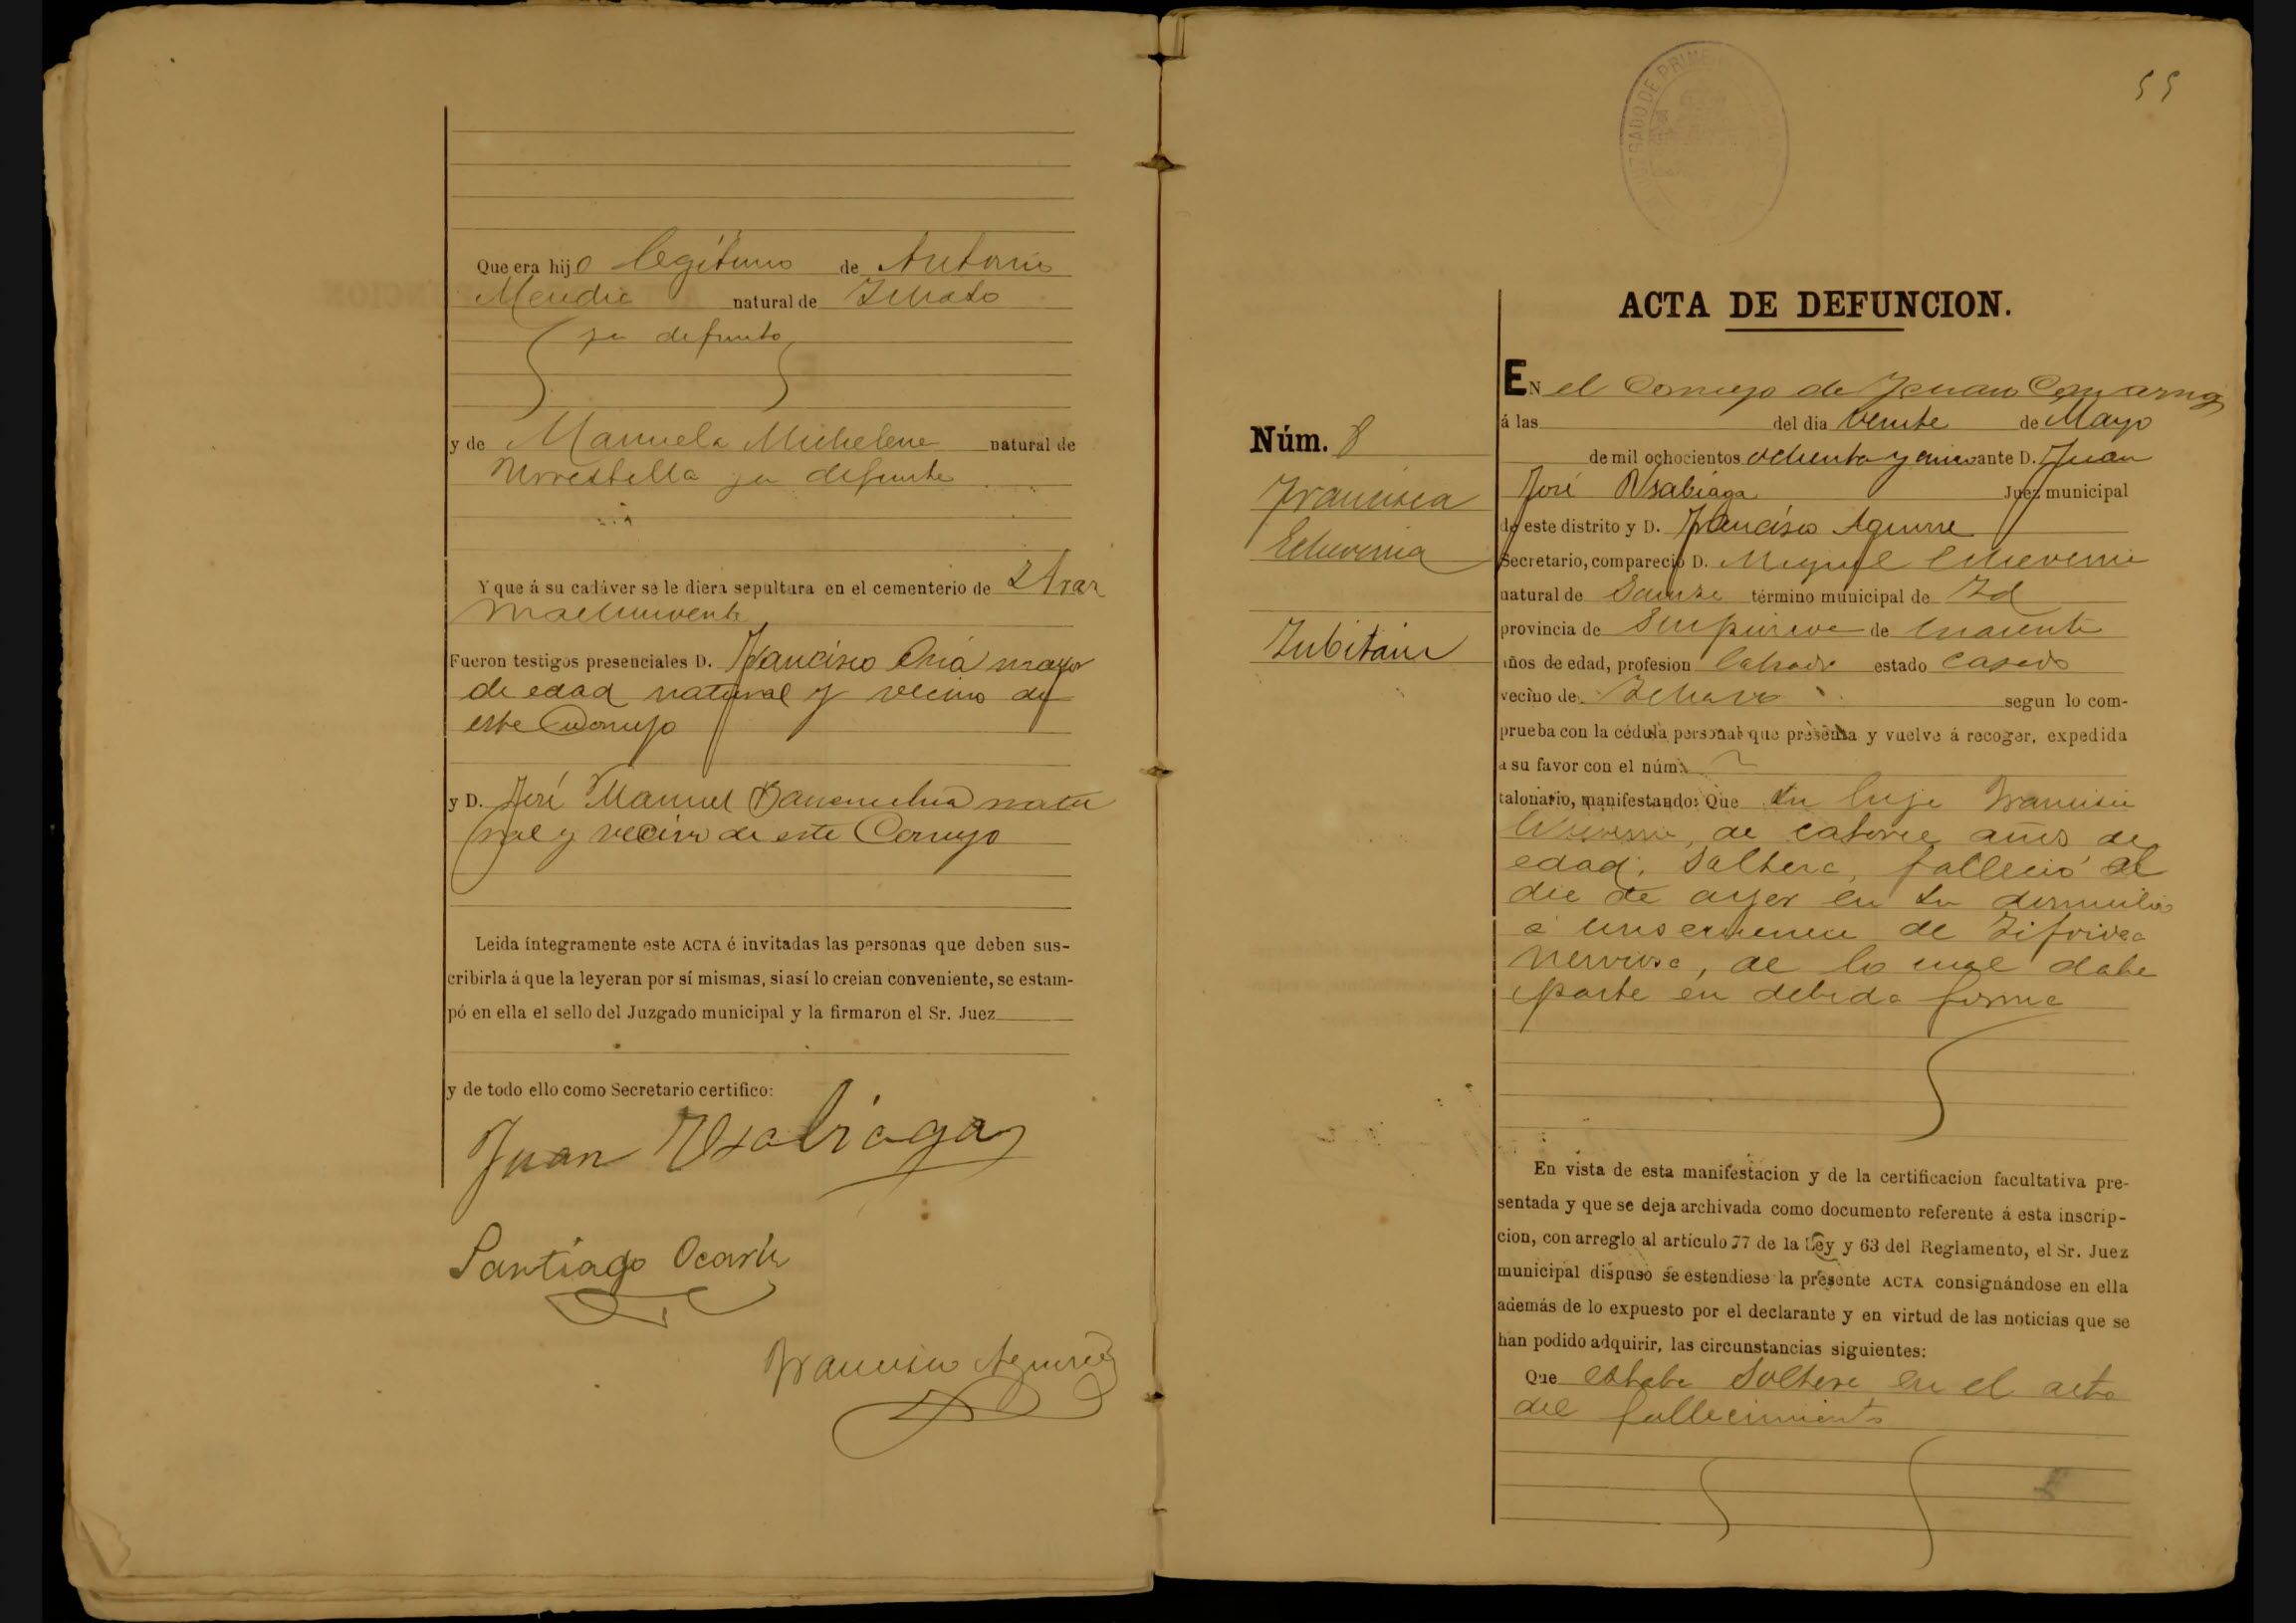 Que era hijo legítimo de Antonio
Mendia natural de
ya defunto
y de Manuela Michelena natural de
Urrestilla ya defunta
Y que á su cadáver se le diera sepultura en el cementerio de
Fueron testigos presenciales D. Francisco Oria mayor
de edad natural y vecino de
este Consejo
y D. José Manuel natu
ral y vecino de este Consejo
Leida íntegramente este ACTA é invitadas las personas que deben sus-
cribirla á que la leyeran por sí mismas, si así lo creian conveniente, se estam-
pó en ella el sello del Juzgado municipal y la firmaron el Sr. Juez
y de todo ello como Secretario certifico:
Juan Usabiaga
Santiago
Francisco Aguirre
55
JUZGADO DE PRIMERA
ACTA DE DEFUNCION.
EN el Consejo de
á las del dia veinte de Mayo
de mil ochocientos ochenta y cinco ante D. Juan
José Usabiaga Juez municipal
de este distrito y D. Francisco Aguirre
Secretario, compareció D. Miguel Echeverria
natural de término municipal de Id
provincia de Guipuzcoa de cuarenta
años de edad, profesion estado casado
vecino de segun lo com-
prueba con la cédula personal que presenta y vuelve á recoger, expedida
a su favor con el núm.
talonario, manifestando: Que su hija Francisca
Echeverria, de catorce años de
edad, soltera, falleció el
dia de ayer en su domicilio
á consecuencia de
nerviosa, de lo cual daba
parte en debida forma
En vista de esta manifestacion y de la certificacion facultativa pre-
sentada y que se deja archivada como documento referente á esta inscrip-
cion, con arreglo al artículo 77 de la Ley y 63 del Reglamento, el Sr. Juez
municipal dispuso se estendiese la presente ACTA consignándose en ella
además de lo expuesto por el declarante y en virtud de las noticias que se
han podido adquirir, las circunstancias siguientes:
Que estaba soltera en el acto
del fallecimiento
Núm. 8
Francisca
Echeverria